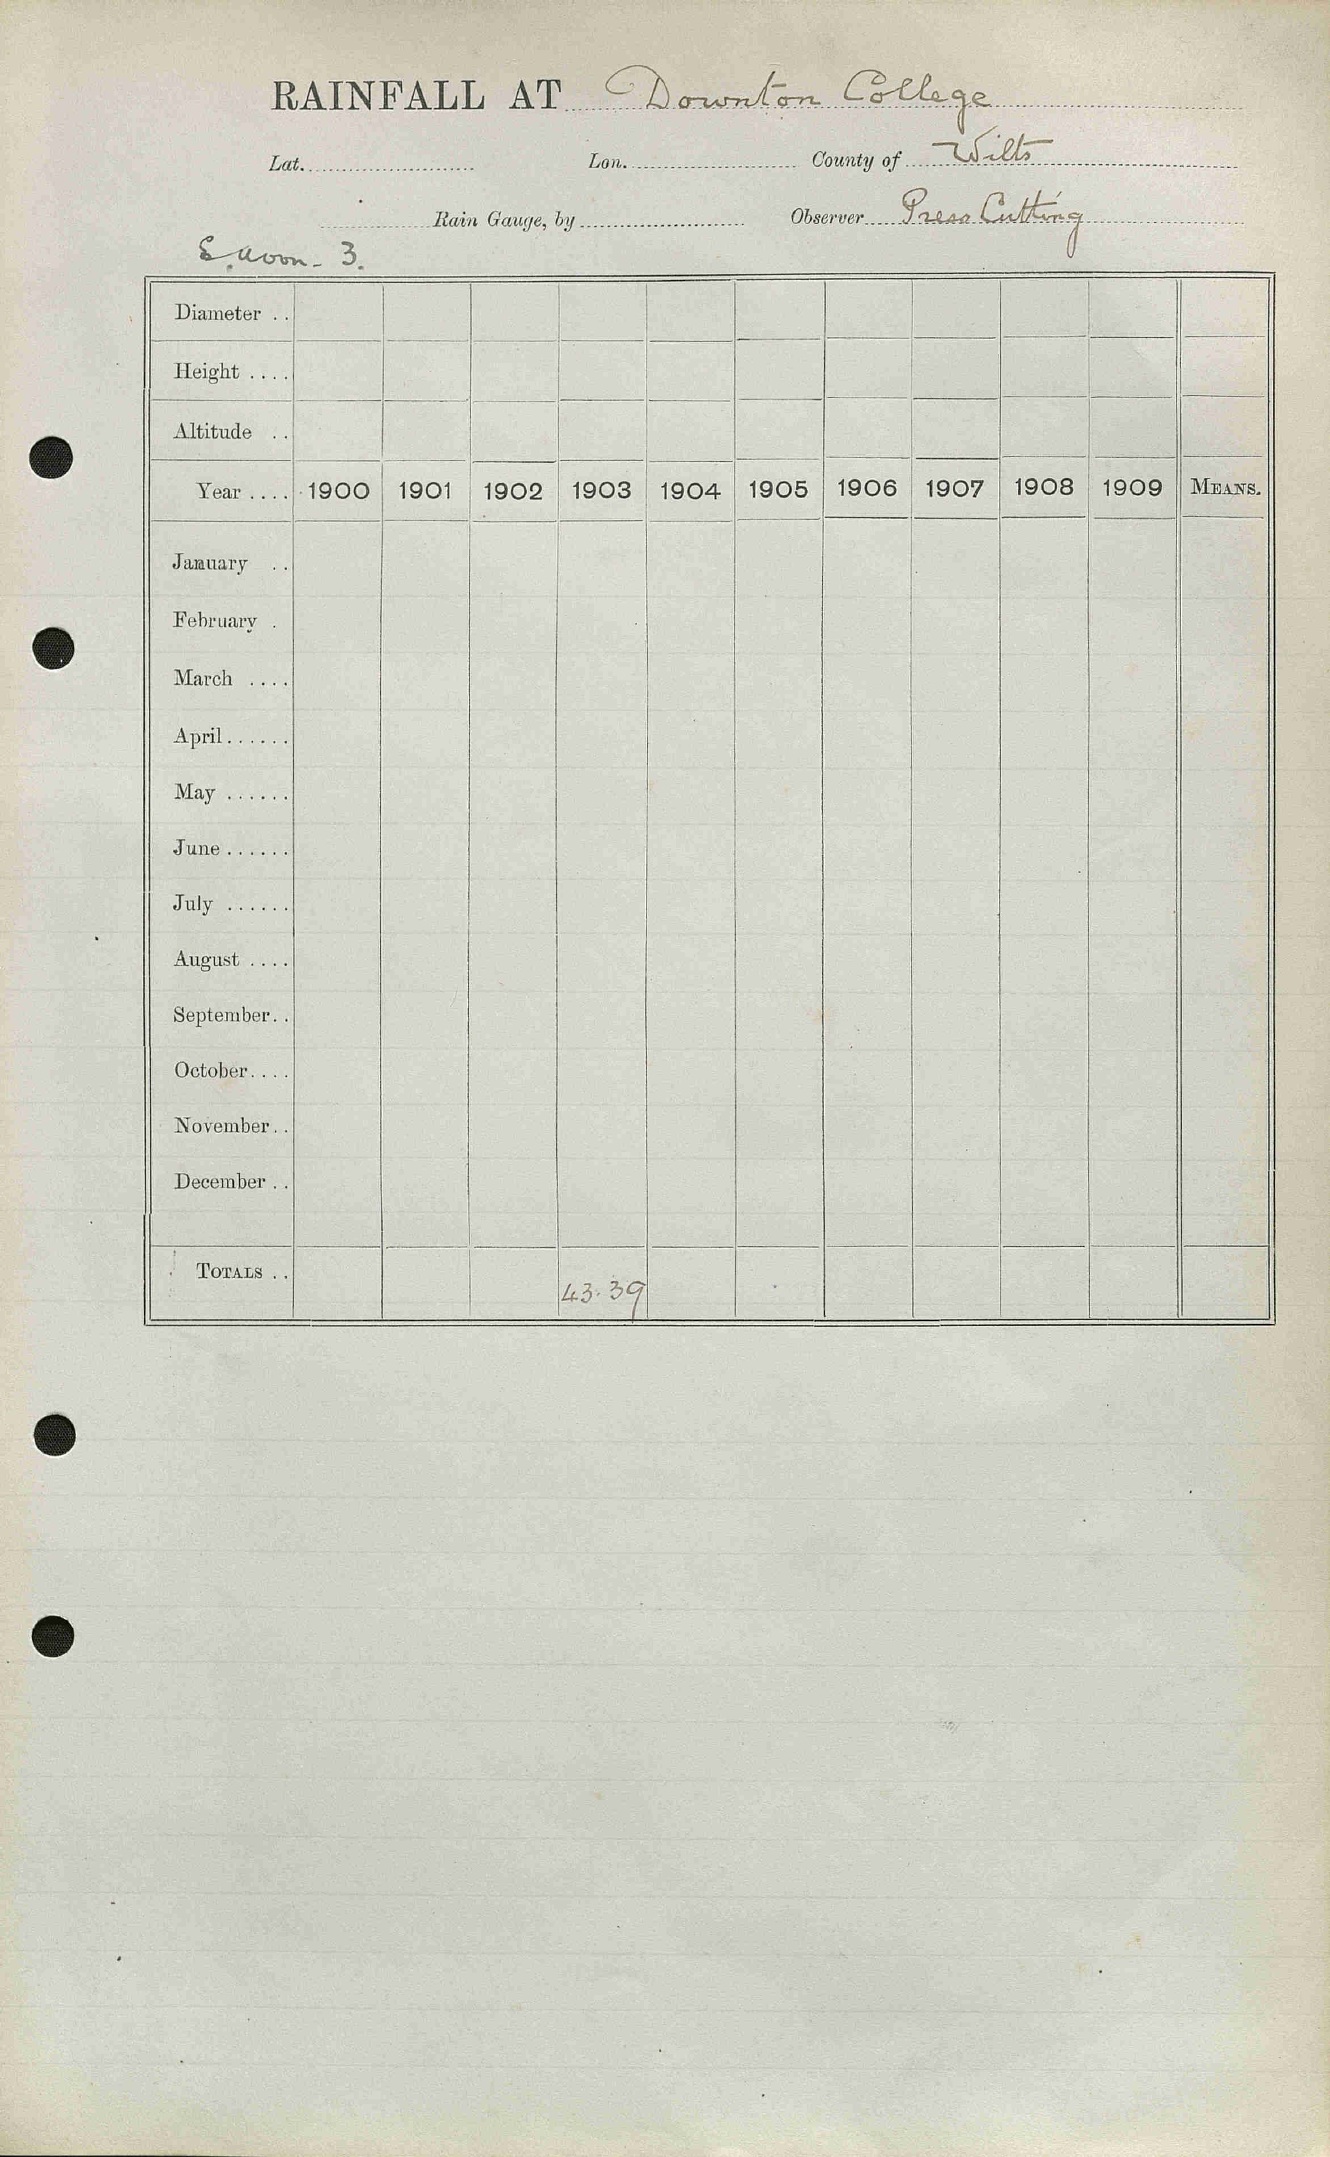 RAINFALL AT Downton College
Lat. Lon. County of Wilts
Rain Gauge, by Observer Press Cutting
E. Avon - 3.
Diameter . .
Height . . . .
Altitude . .
Year . . . . 1900 1901 1902 1903 1904 1905 1906 1907 1908 1909 MEANS.
January . .
February .
March . . . .
April . . . . . .
May . . . . . .
June . . . . . .
July . . . . . .
August . . . .
September. .
October. . . .
November. .
December . .
TOTALS . . 43.39